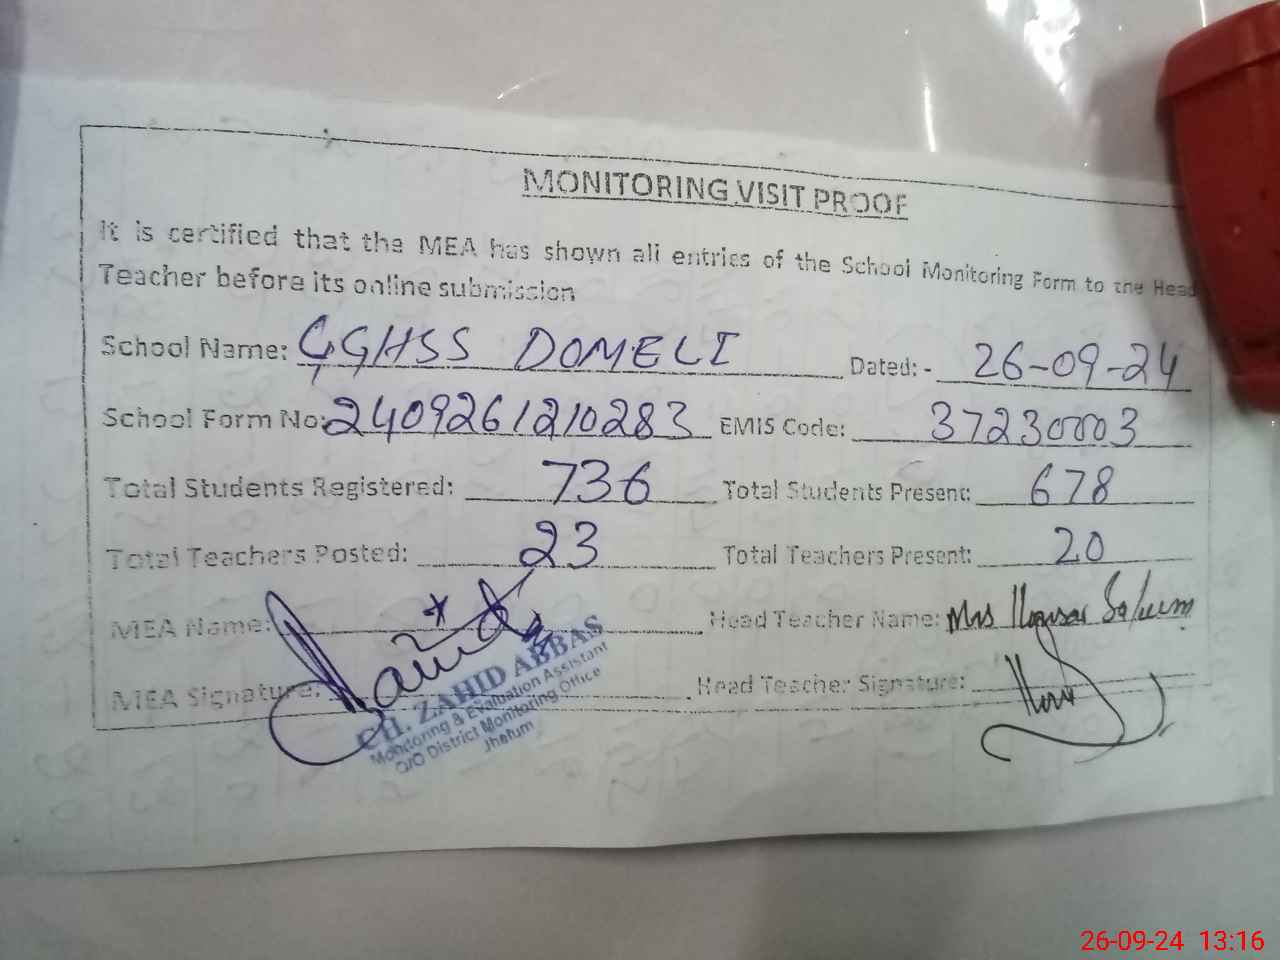 MONITORING VISIT PROOF
It is certified that the MEA has shown all entries of the School Monitoring Form to the Head
Teacher before its online submission
School Name: GGHSS DOMELI Dated: - 26-09-24
School Form No: 2409261210283 EMIS Code: 37230003
Total Students Registered: 736 Total Students Present: 678
Total Teachers Posted: 23 Total Teachers Present: 20
MEA Name: Head Teacher Name: Mrs Saleem
MEA Signature: Head Teacher Signature:
CH. ZAHID ABBAS
Monitoring & Evaluation Assistant
O/O District Monitoring Office
Jhelum
26-09-24 13:16